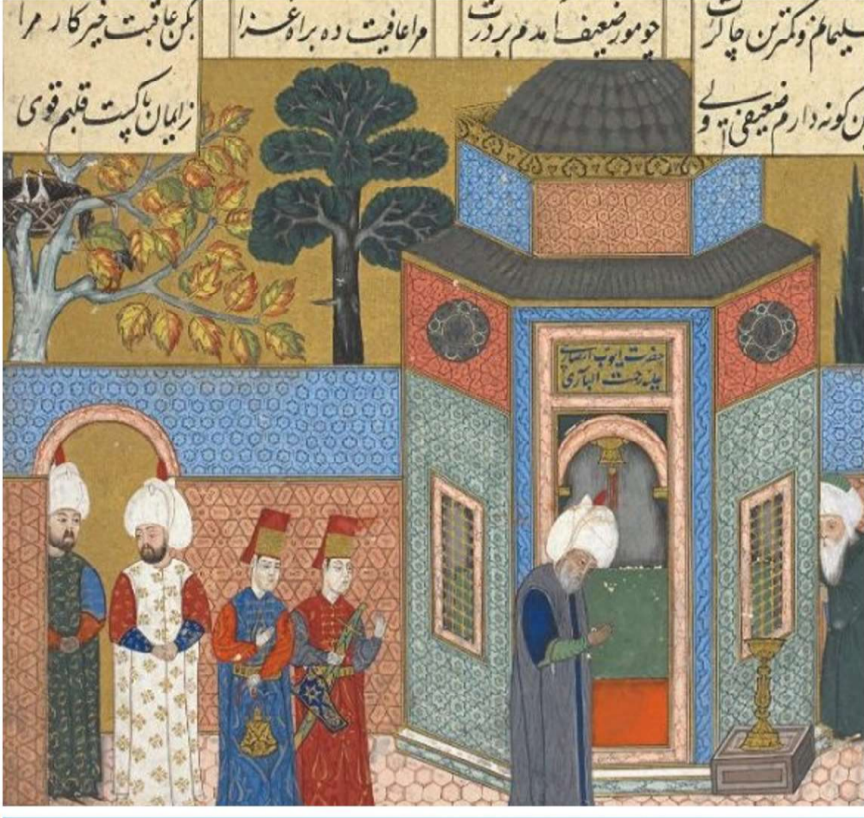 سلیمانم و کمترین چاکرت
چو مور ضعیف امدم بر درت
مرا عافیت ده براه غزا
بکن عاقبت خیر کار مرا
کونه دارم ضعیفی ولی
ز ایمان پاکست قلبم قوی
حضرت ایوب انصاری
علیه رحمت الباری